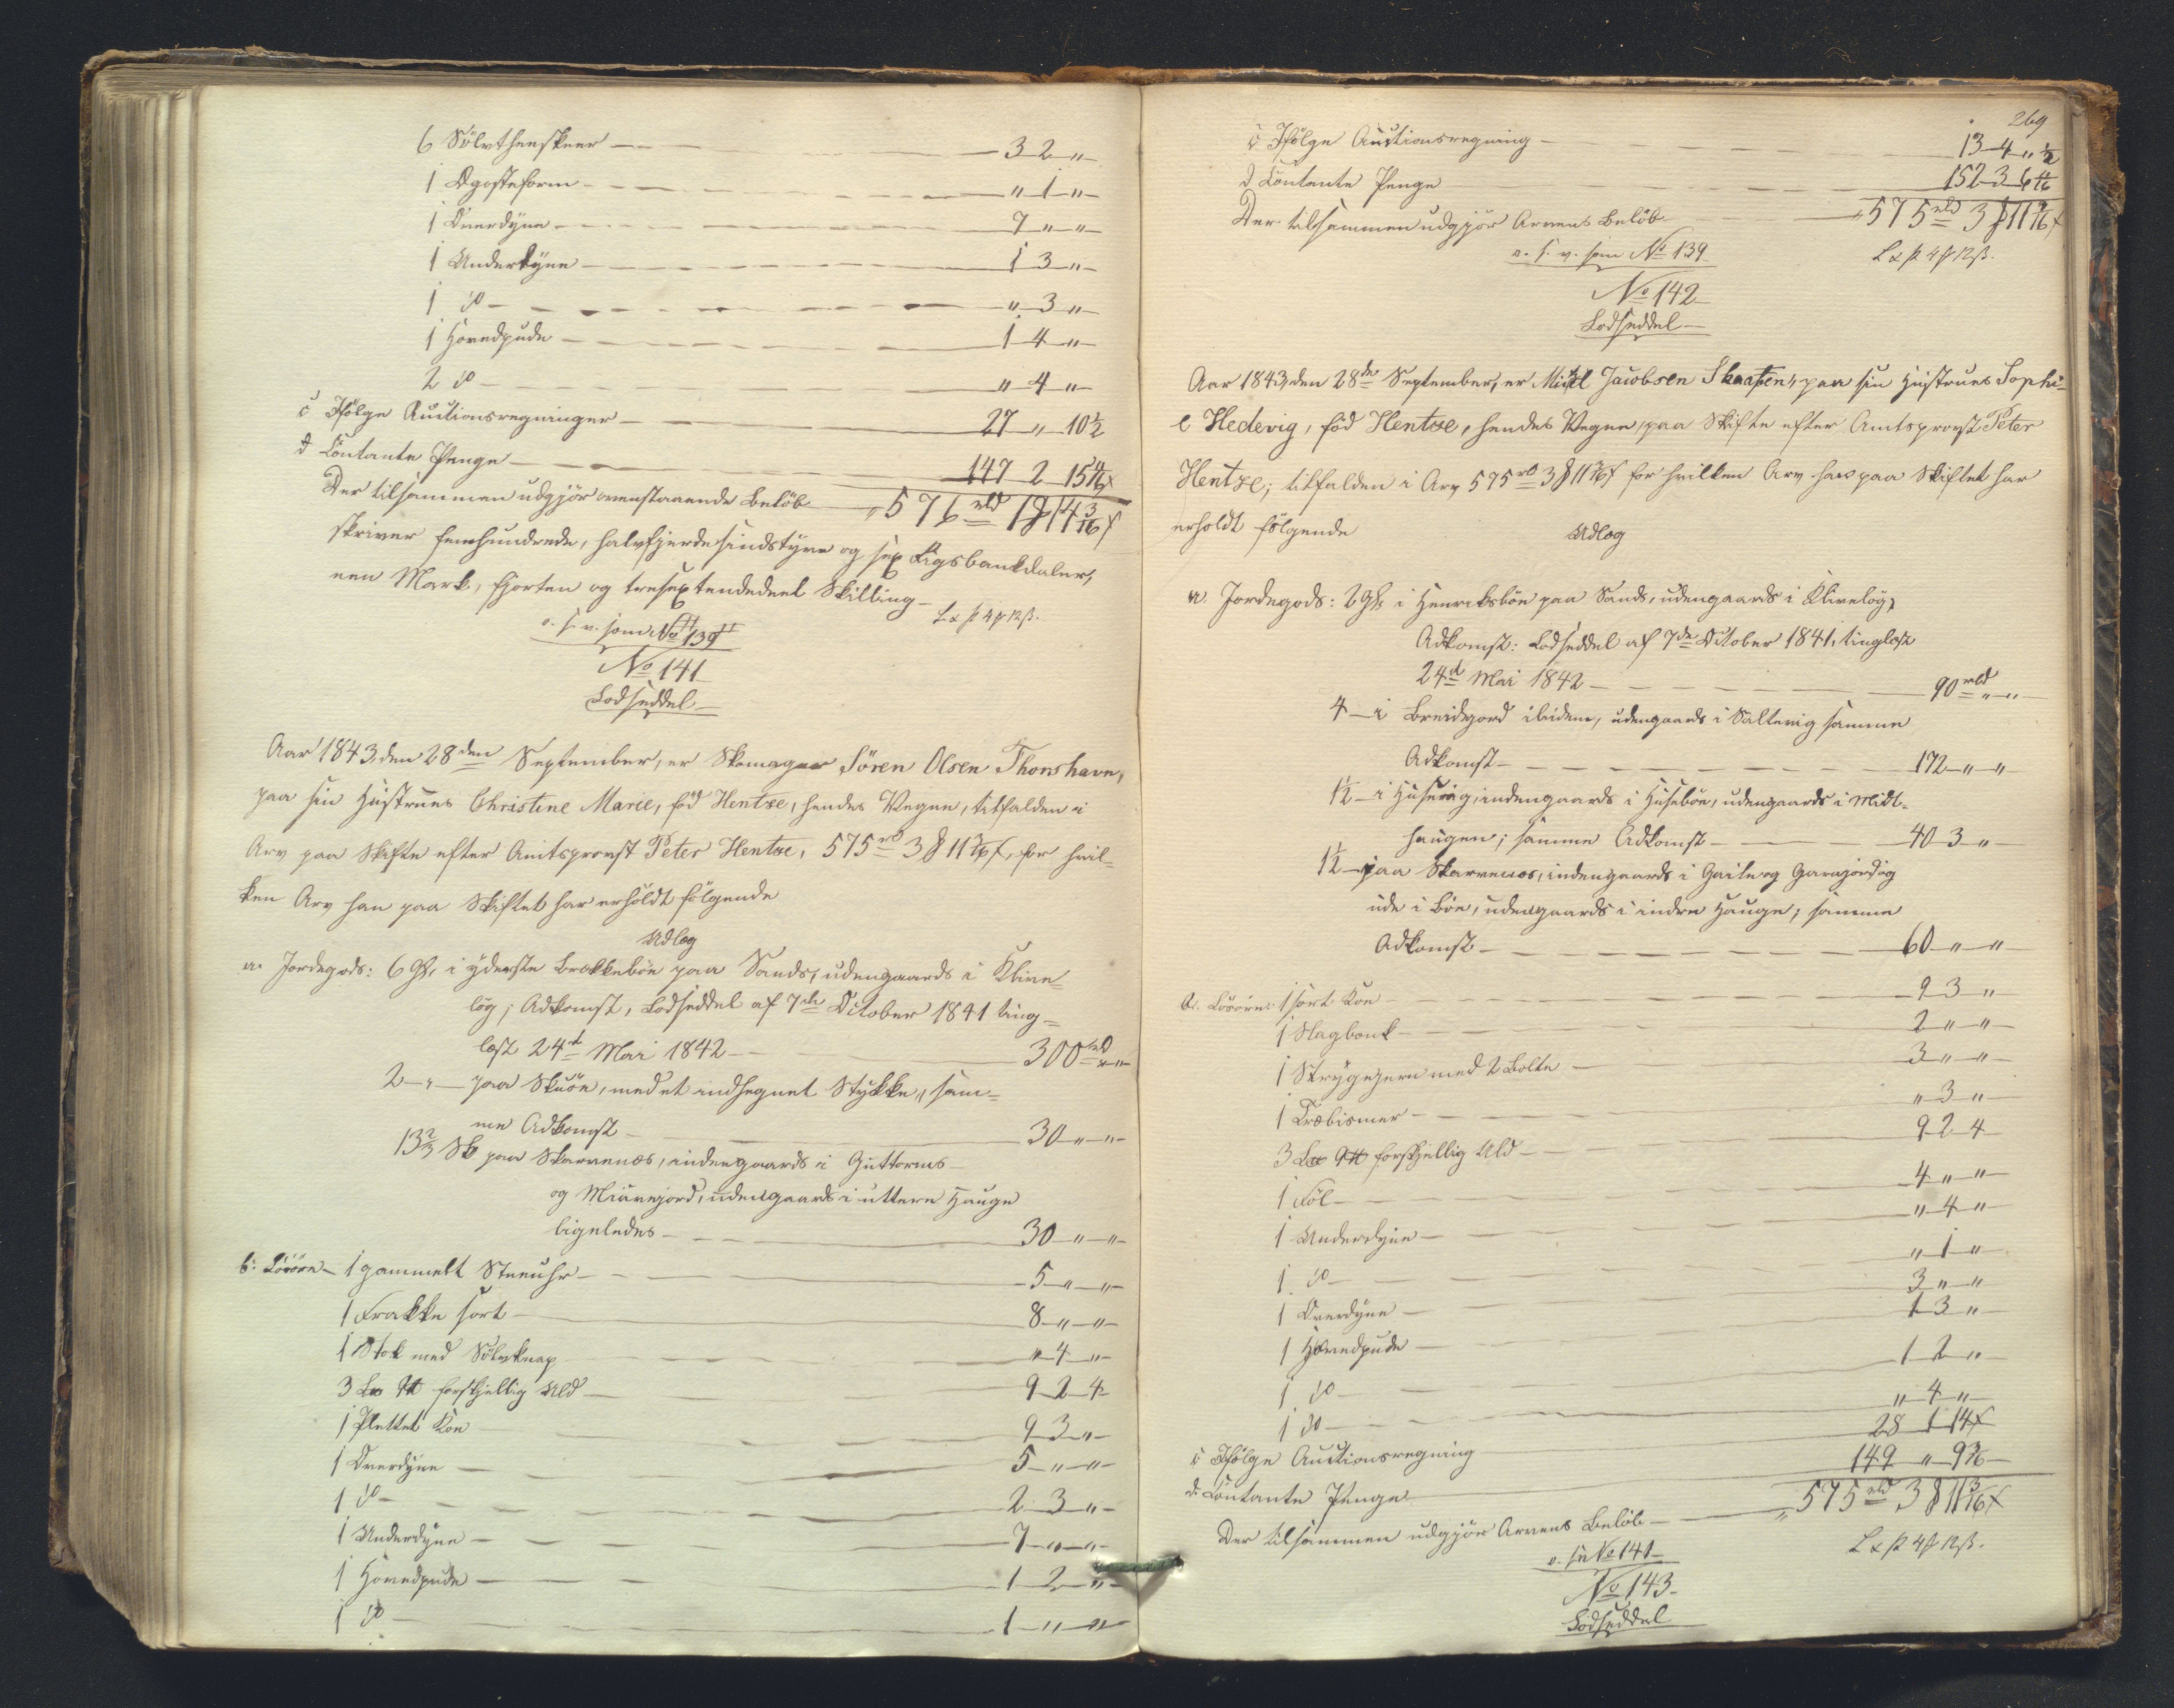 6 Sölvtheeskeer — 3 2 "
1 Ogsteform — " 1 "
1 Overdyne — 7 " "
1 Underdyne — 1 3 "
1 do — " 3 "
1 Hovedpude — 1 4 "
2 do — " 4 "
c Ifölge Auctionsregninger — 27 " 10½
d Contante Penge — 147 2 15
Der tilsammen udgjör ovenstaaende Belöb — 576 rbd 1 # 14 3/16 s
skriver femhundrede, halvfjerdesindstyve og sex Rigsbankdaler,
een Mark, fjorten og tresextendedeel Skilling —
L & 4 # 12 s.
o. s. v. som No 139
No 141
Lodseddel —
Aar 1843, den 28den September, er Skomager Sören Olsen Thorshavn,
paa sin Hustrues Christine Marie, föd Hentze, hendes Vegne, tilfalden i
Arv paa Skifte efter Amtsprovst Peter Hentze, 575 rb 3 # 11 3/16 s, for hvil-
ken Arv han paa Skiftet har erholdt fölgende
Udlæg
a. Jordegods: 6 Gl. i yderste Brekkebön paa Sand, udengaards i Klive-
lög; Adkomst, Lodseddel af 7de October 1841 ting-
læst 24d Mai 1842 — 300 rbd " "
2 — " — paa Skuön, med et indhegnet Stykke, sam-
me Adkomst — 30 " "
13⅔ Sk paa Skarvenæs, indengaards i Guttorms-
og Miürejord, udengaards i uttere Hauge
ligeledes — 30 " "
b: Lösöre — 1 gammelt Stueuhr — 5 " "
1 Frakke sort — 8 " "
1 Stok med Sölvknap — " 4 "
3 L 9 ℔ forskjellig Uld — 9 2 4
1 Plettet Koe — 9 3 "
1 Overdyne — 5 " "
1 do — 2 3 "
1 Underdyne — 7 " "
1 Hovedpude — 1 2 "
1 do — 1 " "
269
c Ifölge Auctionsregning — 13 4 " ½
d Contante Penge — 152 3 6
Der tilsammen udgjör Arvens Belöb — 575 rbd 3 # 11 3/16 s
o. s. v. som No 139
L & 4 # 12 s.
No 142
Lodseddel —
Aar 1843, den 28de September, er Jacobsen Skaapen, paa sin Hustrues Sophi-
e Hedevig, föd Hentze, hendes Vegne, paa Skifte efter Amtsprovst Peter
Hentze; tilfalden i Arv 575 rb 3 # 11 3/16 s for hvilken Arv han paa Skiftet har
erholdt fölgende
Udlæg
a. Jordegods: 2 Gl. i Henriksbön paa Sand, udengaards i Kliveløg,
Adkomst: Lodseddel af 7de October 1841, tinglæst
24d Mai 1842 — 90 rbd " "
4 — i Breidegord ibidem, udengaards i Saltevig samme
Adkomst — 172 " "
1½ — i Husevig, indengaards i Husebön, udengaards i Midt-
haugen; samme Adkomst — 40 3 "
1½ — paa Skarvenæs, indengaards i og
ude i Bön, udengaards i indre Hauge; samme
Adkomst — 60 " "
b. Lösöre: 1 sort Koe — 9 3 "
1 Slagbænk — 2 " "
1 Strygejern med 2 Bolte — 3 " "
1 Træbismer — " 3 "
3 L 9 ℔ forskjellig Uld — 9 2 4
1 Föl — 4 " "
1 Underdyne — " 4 "
1 do — " 1 "
1 Overdyne — 3 " "
1 Hovedpude — 1 3 "
1 do — 1 2 "
1 do — " 4 "
c Ifölge Auctionsregning — 28 1 14 s
d. Contante Penge — 149 " 9 3/16
Der tilsammen udgjör Arvens Belöb — 575 rbd 3 # 11 3/16 s
o. s. v No 141
L & 4 # 12 s.
No 143.
Lodseddel